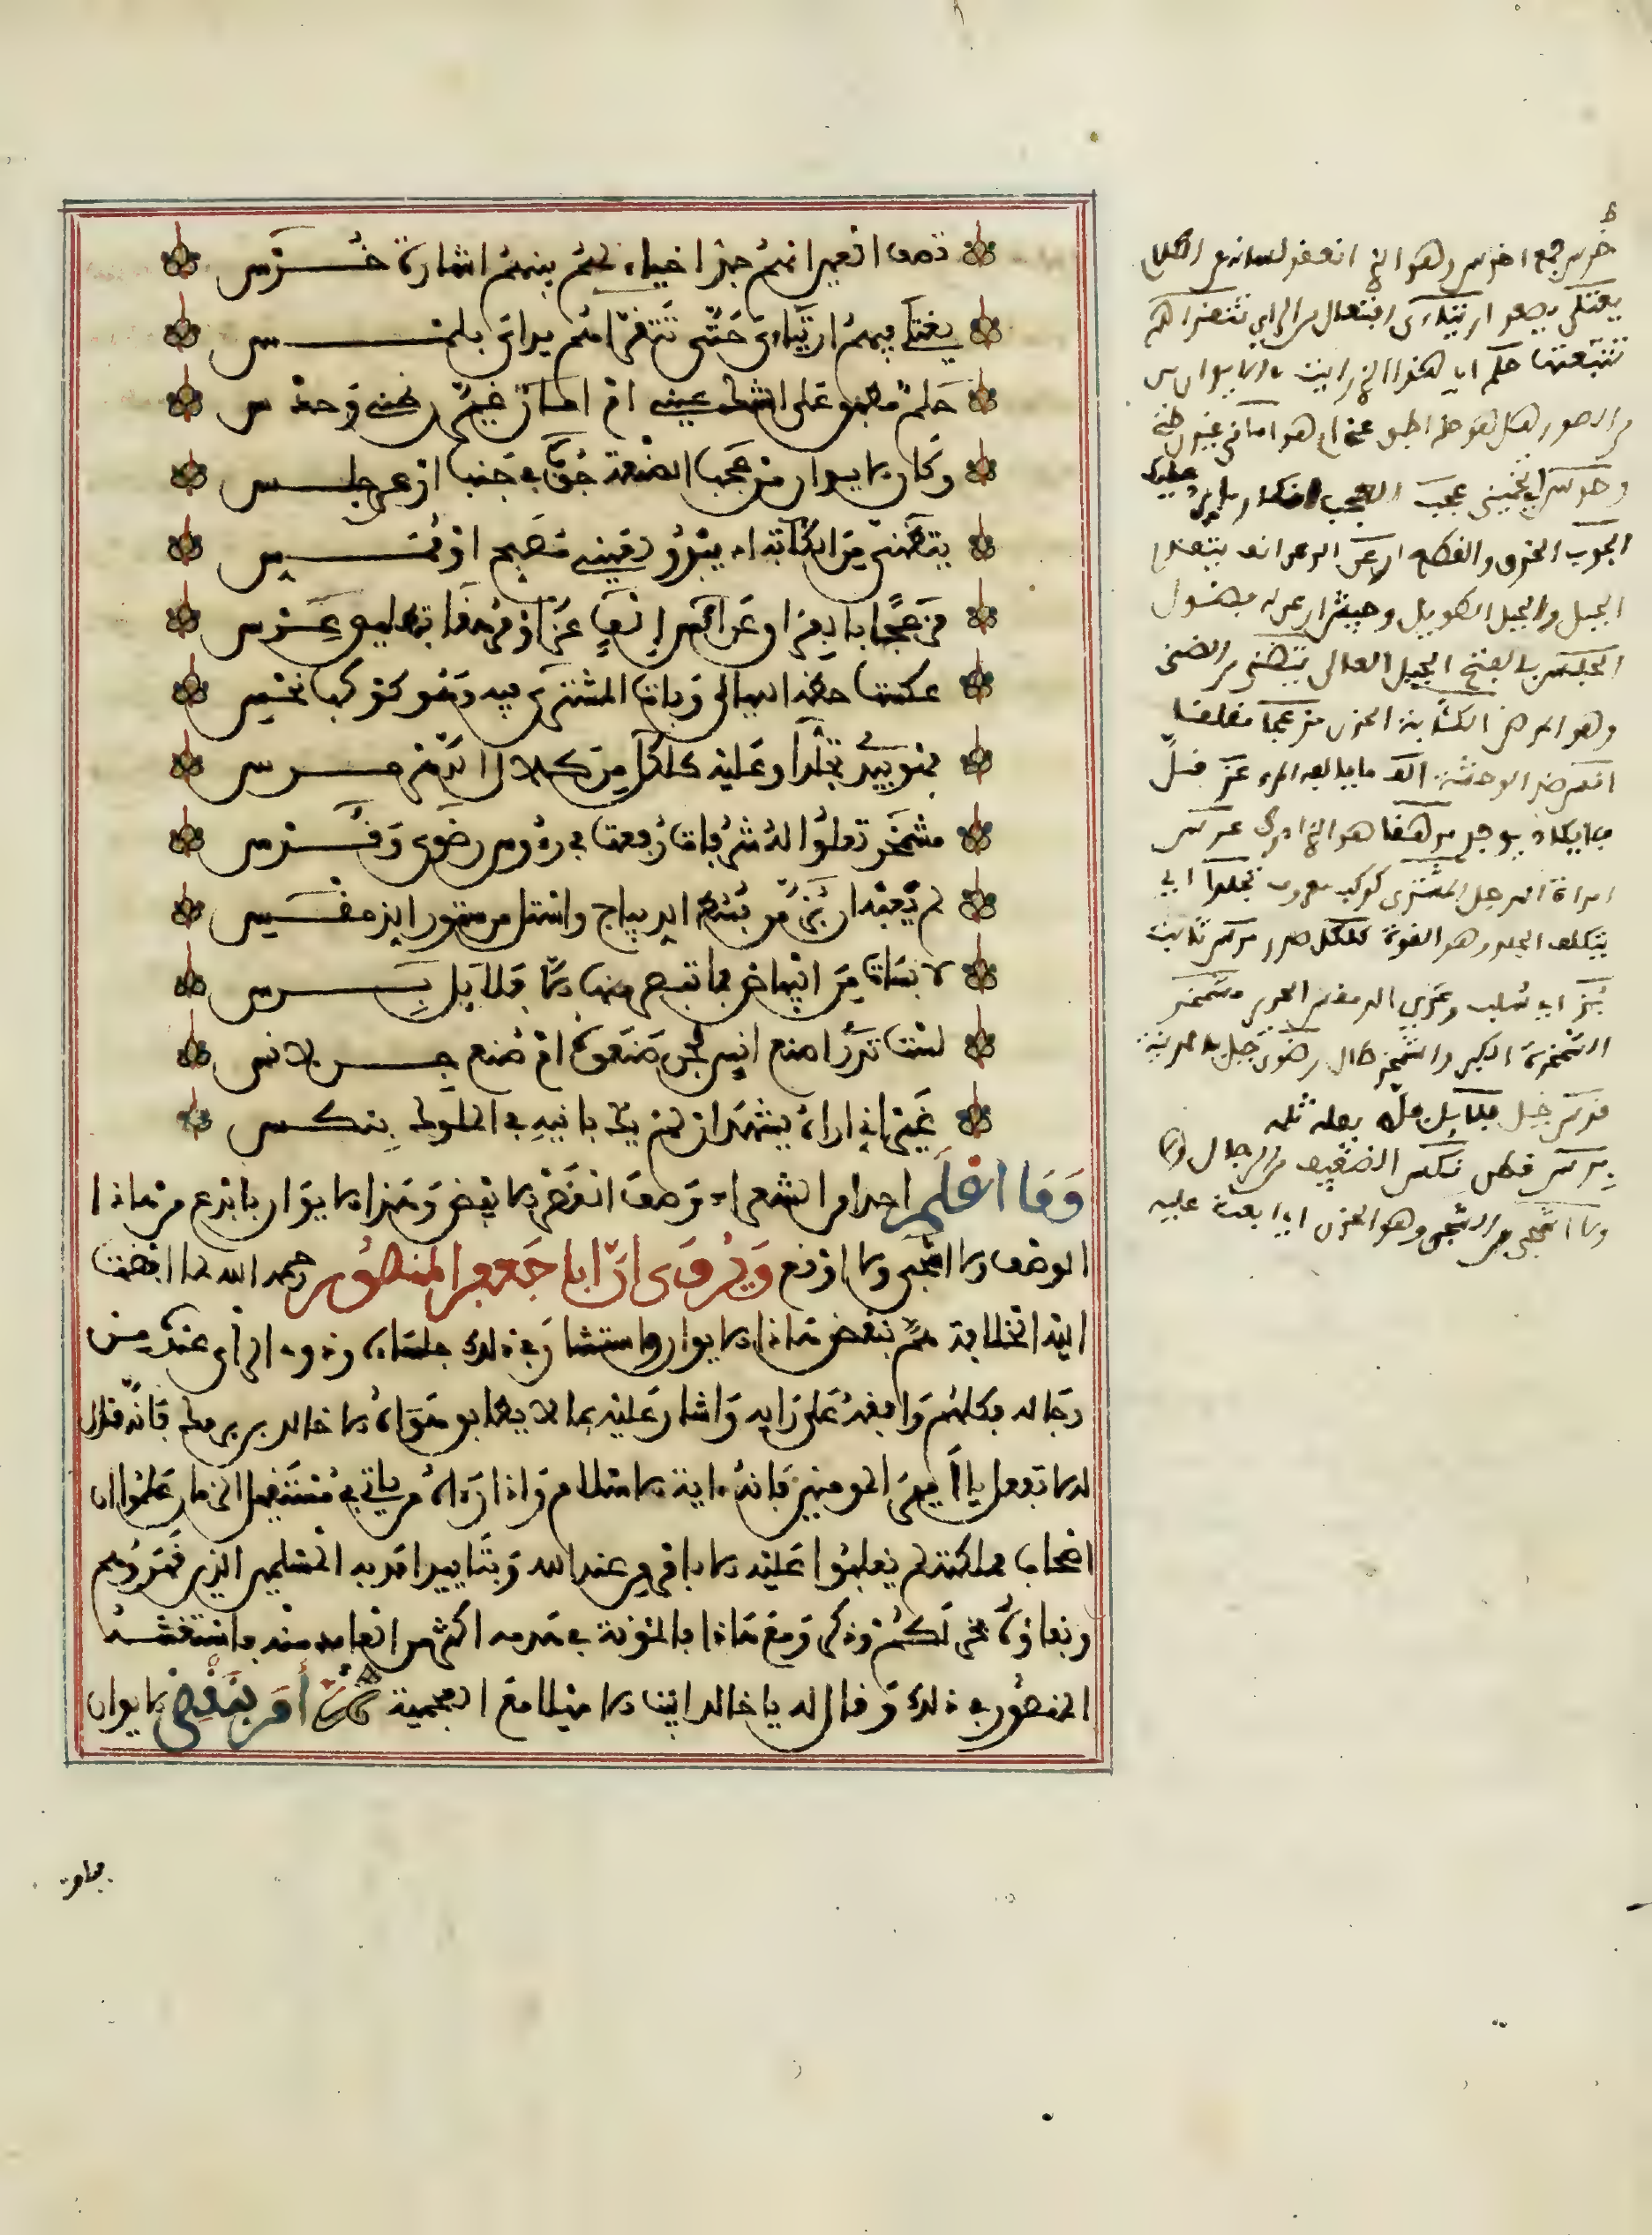 تصف العين انهم جد احياء لهم بينهم اشارة خرس
يغتلي فيهم ارتيابي حتى تتقراهم يداي بلمس
حلم مطبق على الشك عيني ام امان غيرن ظني وحدسي
وكان الايوان من عجب الصنعة جوب في جنب ارعن جلس
يتظنى من الكئابة ان يبدو لعيني مصبح او ممس
مزعجا بالفراق عن انس الف عز او مرهقا بتطليق عرس
عكست حظه الليالي وبات المشتري فيه وهو كوكب نحس
فهو يبدي تجلدا وعليه كلكل من كلاكل الدهر مرس
مشمخر تعلو له شرفات رفعت في رءوس رضوى وقدس
لم يعبه ان بز من بسط الديباج واستل من ستور الدمقس
لابسات من البياض فما تبصر منها الا فلائل برس
ليست تدرا صنع انس لجن صنعوه ام صنع جن لانس
غير اني اراه يشهد ان لم يك بانيه في الملوك بنكس
وما اعلم احدا من الشعراء وصف انقض الا بعض وهذا الايوان بابدع من هاذا
الوصف ولا اشجى ولا اوقع ويروى ان ابا جعفر المنصور رحمه الله لما افضت
اليه الخلافة هم بنقض هاذا الايوان واستشار في ذلك جلساءه وذوي الراي عنده من
رجاله فكلهم وافقه على رايه واشار عليه بما لا يطابق هواه الا خالد بن برمك فانه قال
له لا تفعل يا امير المومنين فانه ءاية الاسلام واذا رءاه من ياتي في مستقبل الزمان علموا ان
اصحاب مملكته لم يغلبوا عليه الا بامر من عند الله وبتاييد امد به المسلمين الذين قهروهم
وبقاؤه فخر لكم وذكر ومع هاذا فالمؤنة في هدمه اكثر من العايد منه فاستغشه
المنصور في ذلك وقال له يا خالد ابيت الا ميلا مع العجمية ثم امر بنقض الايوان
خرس جمع اخرس وهو الذي انعقد لسانه عن الكلام
يغتلي ارتياءي افتعال من الراي تتقراهم
تتبعت حلم اي هذا الذي رايت
من الصور هل هو حلم اطبق عيني ام هو اماني غيرن ظني
وحدسي اي تخميني عجب
الجوب الخرق والقطع ارعن الرعن انف يتقدم
الجبل والجبل الطويل وجيش ارعن له فضول
الجلس بالفتح الجبل العالي يتظنى من الظن
الكئابة الحزن مزعجا مقلقا
انس ضد الوحشة الف ما يالفه المرء عز قل
فلا يكاد يوجد مرهقا هو الذي عرس
امراة الرجل المشتري كوكب معروف تجلدا اي
يتكلف الجلد وهو القوة كلكل صدر مرس ثابت
بز اي سلب الدمقس الحرير مشمخر
المشمخر الكبر واشمخر طال رضوى جبل بالمدينة
قدس جبل
برس قطن نكس الضعيف من الرجال
ولا اشجى من الشجى وهو الحزن اي ابعث عليه